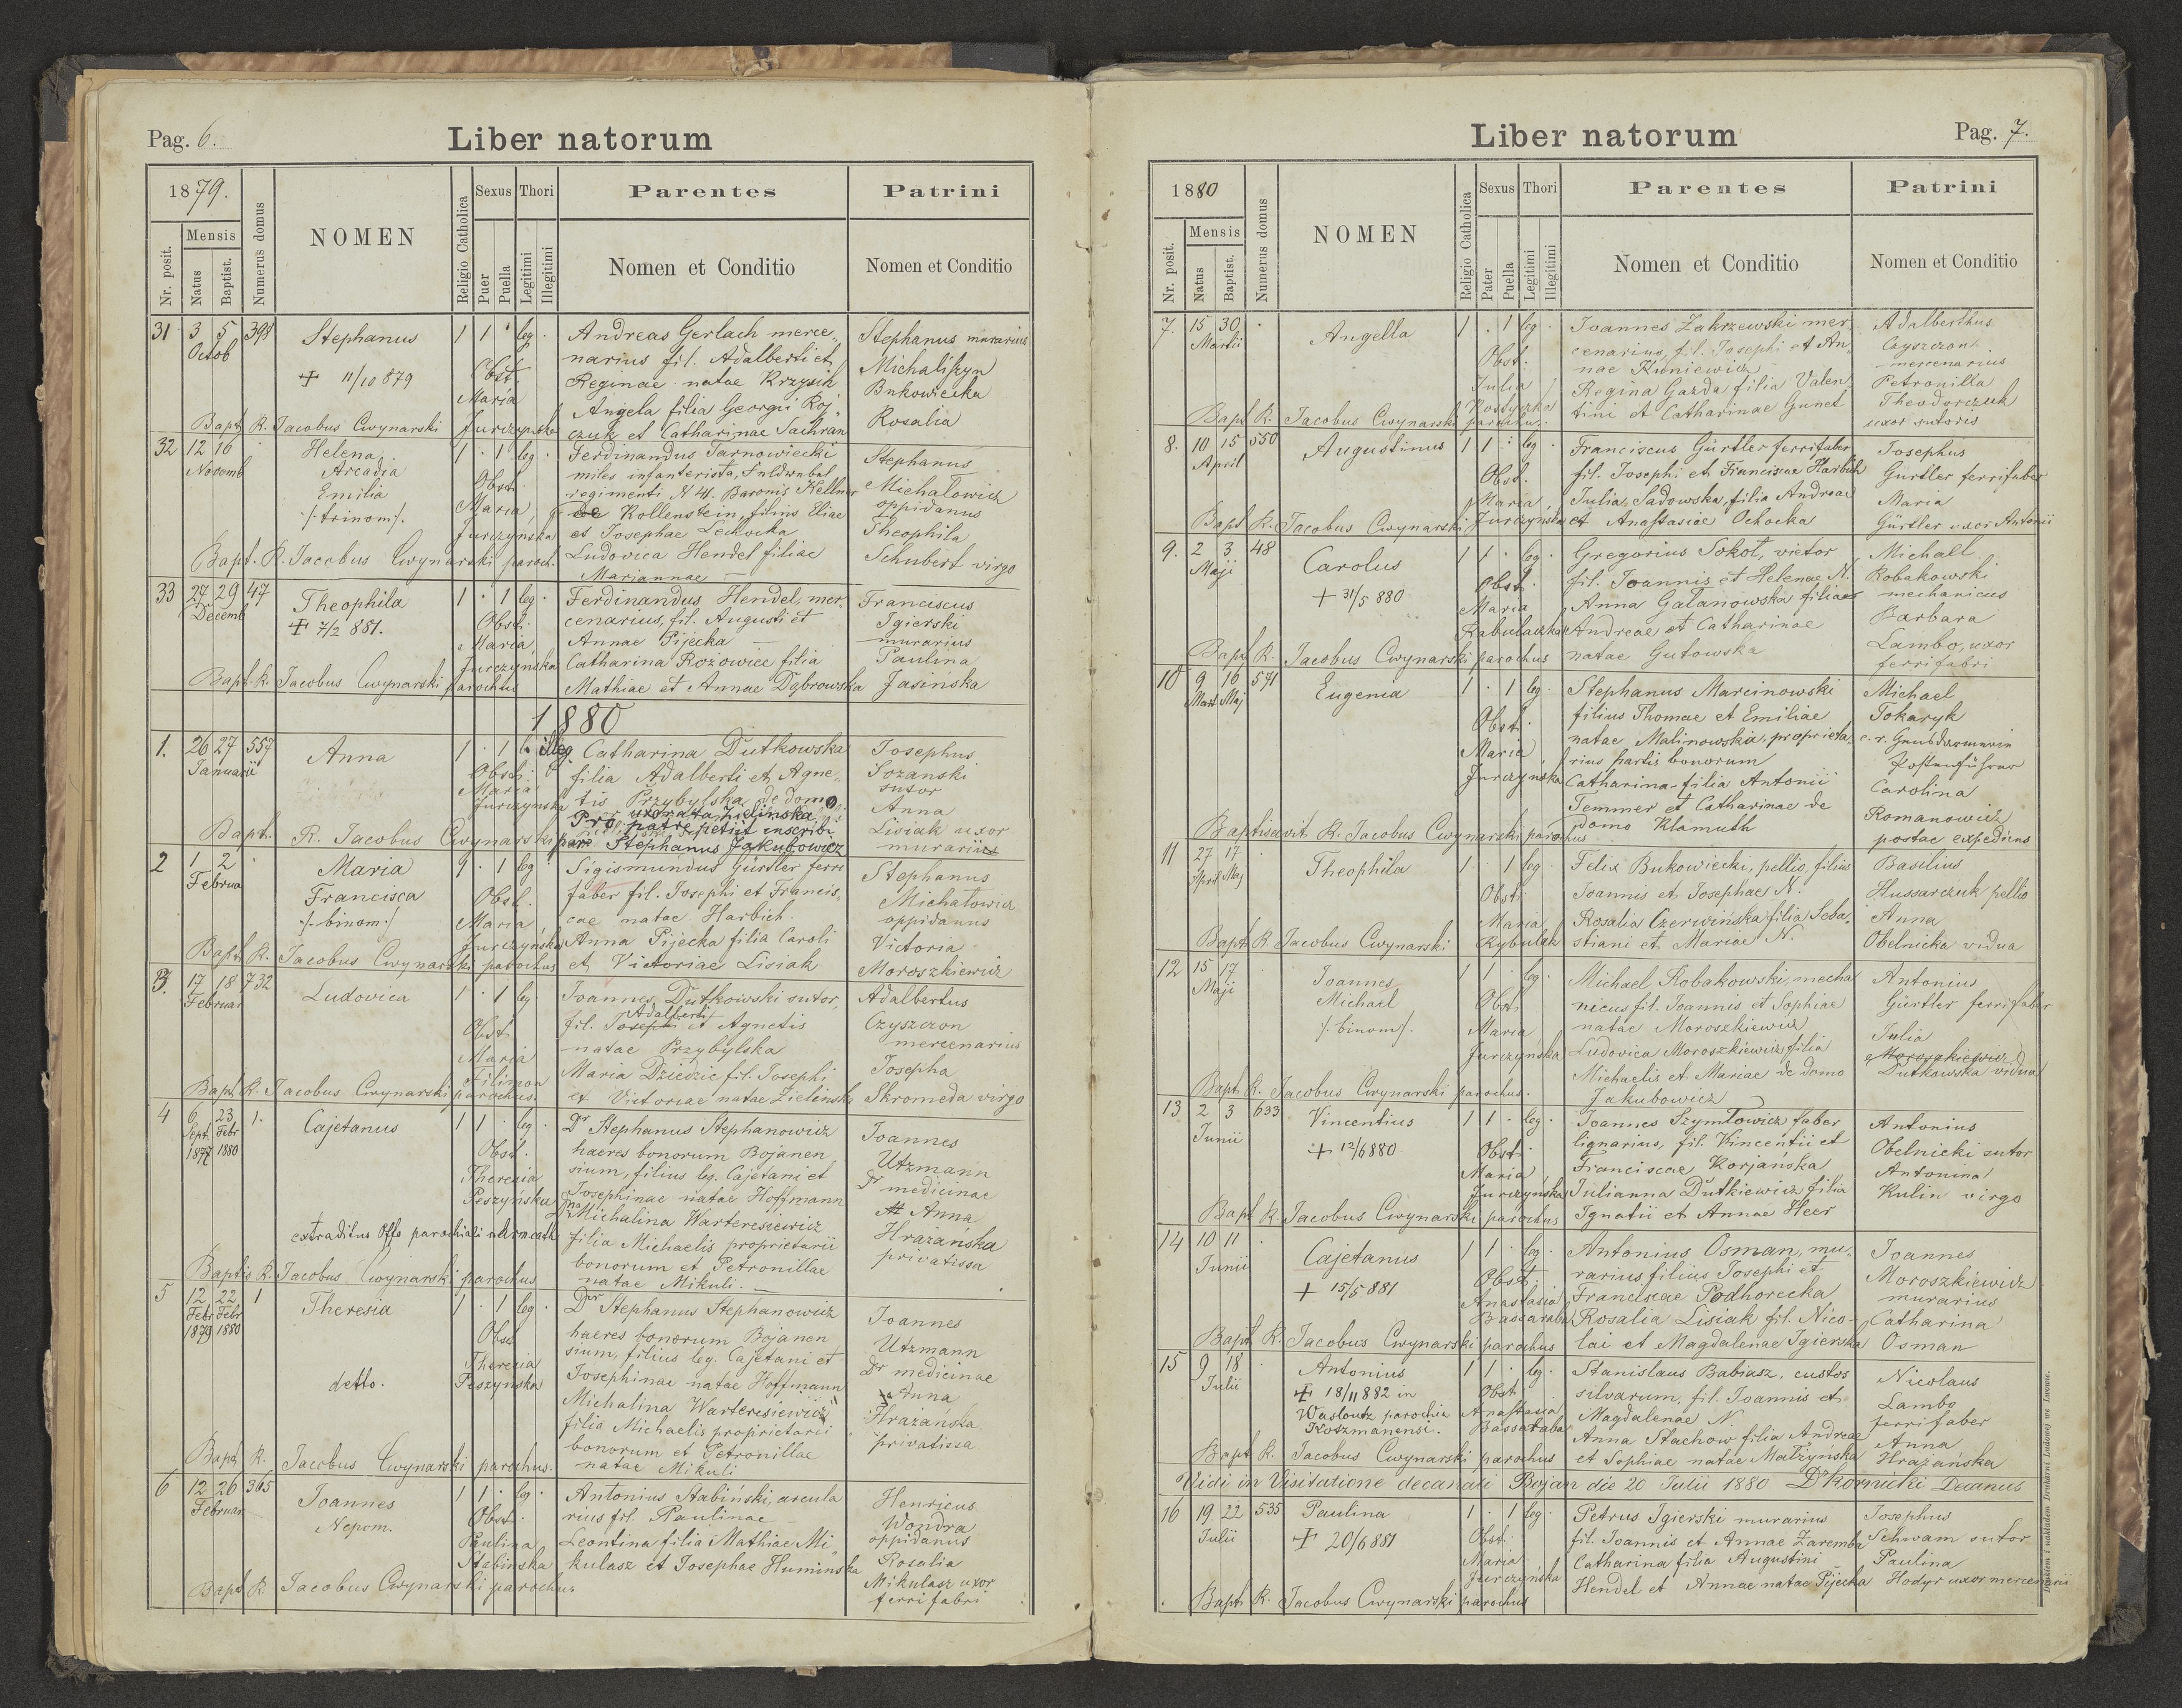 Pag. 6.
Liber natorum
1879.
Nr. posit.
Mensis
Natus
Baptist.
Numerus domus
NOMEN
Religio Catholica
Sexus
Puer
Puella
Thori
Legitimi
Illegitimi
Parentes
Nomen et Conditio
Patrini
Nomen et Conditio
31 3 5 398 Stephanus 1 1 leg.
Octob
+ 11/10 879
Obst.
Maria
Jurczynska
Andreas Gerlach merce-
narius fil. Adalberti et
Reginae natae Krzysik
Angela filia Georgii Roj-
czuk et Catharinae Sachran
Stephanus murarius
Michaliszyn
Bukowiecka
Rosalia
Bapt. R. Jacobus Cwynarski
32 12 16 Helena 1 1 leg.
Novemb
Arcadia
Emilia
/trinom/.
Obst.
Maria
Jurczynska
Ferdinandus Tarnowiecki
miles infanterista,
regimenti N 41. Baronis Kellner
de Kollenstein, filius Eliae
et Josephae Leckocka
Ludovica Hendel filiae
Mariannae
Stephanus
Michalowicz
oppidanus
Theophila
Schubert virgo
Bapt. R. Jacobus Cwynarski paroch.
33 27 29 47 Theophila 1 1 leg.
Decemb
+ 7/2 881.
Obst.
Maria
Jurczynska
Ferdinandus Hendel, mer-
cenarius, fil. Augusti et
Annae Pijecka
Catharina Rozowice filia
Mathiae et Annae Dąbrowska
Franciscus
Igierski
murarius
Paulina
Jasińska
Bapt. R. Jacobus Cwynarski parochus
1880
1. 26 27 557 Anna 1 1 illeg.
Januarii
Obst.
Maria
Jurczynska
Catharina Dutkowska
filia Adalberti et Agne-
tis Przybylska de domo
uxorata Zielinska
Pro patre petiit inscribi
Stephanus Jakubowicz
Josephus
Sozanski
sutor
Anna
Lisiak uxor
murarii
Bapt. R. Jacobus Cwynarski par
2 1 2 Maria 1 leg
Februa
Francisca
/.binom./
Obst.
Maria
Jurczyńska
Sigismundus Gürtler ferri
faber fil. Josephi et Francis-
cae natae Harbich.
Anna Pijecka filia Caroli
et Victoriae Lisiak
Stephanus
Michalowicz
oppidanus
Victoria
Moroszkiewicz
Bapt. R. Jacobus Cwynarski parochus
3. 17 18 732 Ludovica 1 1 leg.
Februar
Obst.
Maria
Filimon
Joannes Dutkowski sutor,
Adalberti
fil. Josephi et Agnetis
natae Przybylska
Maria Dziedzic fil. Josephi
et Victoriae natae Zielinska
Adalbertus
Czyszczon
mercenarius
Josepha
Skromeda virgo
Bapt. R. Jacobus Cwynarski parochus.
4 6 23 1. Cajetanus 1 1 leg.
Sept. Febr
1877 1880
Obst.
Theresia
Peszyńska
Dr Stephanus Stephanowicz
haeres bonorum Bojanen
sium, filius leg. Cajetani et
Josephinae natae Hoffmann
Michalina Warteresiewicz
filia Michaelis proprietarii
bonorum et Petronillae
natae Mikuli.
Joannes
Utzmann
Dr medicinae
Anna
Hrażanska
privatissa
extraditus Offo parochiali
Baptis R. Jacobus Cwynarski parochus
5 12 22 1 Theresia 1 1 leg
Febr Febr
1879 1880
detto.
Obst
Theresia
Peszynska
Dr Stephanus Stephanowicz
haeres bonorum Bojanen
sium, filius leg. Cajetani et
Josephinae natae Hoffmann
Michalina Warteresiewicz
filia Michaelis proprietarii
bonorum et Petronillae
natae Mikuli
Joannes
Utzmann
Dr medicinae
Anna
Hrażańska
privatissa
Bapt R. Jacobus Cwynarski parochus.
6 12 26 365 Joannes 1 1 leg
Februar
Nepom.
Obst.
Paulina
Stabinska
Antonius Stabiński, arcula
rius fil. Paulinae
Leontina filia Mathiae Mi-
kulasz et Josephae Huminska
Henricus
Wondra
oppidanus
Rosalia
Mikulasz uxor
ferri fabri
Bapt R Jacobus Cwynarski parochus
Liber natorum
Pag. 7.
1880
Nr. posit.
Mensis
Natus
Baptist.
Numerus domus
NOMEN
Religio Catholica
Sexus
Pater
Puella
Thori
Legitimi
Illegitimi
Parentes
Nomen et Conditio
Patrini
Nomen et Conditio
7. 15 30 Angella 1 1 leg
Martii
Obst.
Julia
Kostyszka
Joannes Zakrzewski mer-
cenarius, fil. Josephi et An-
nae Kuniewicz
Regina Gazda filia Valen-
tini et Catharinae Gunet
Adalberthus
Czyszczon
mercenarius
Petronilla
Theodorczuk
uxor sutoris
Bapt R. Jacobus Cwynarski parochus.
8. 10 15 550 Augustinus 1 1 leg
April
Obst.
Maria
Jurczyńska
Franciscus Gürtler ferrifaber
fil. Josephi et Franciscae Harbich
Julia Sadowska, filia Andreae
et Anastasiae Ochocka
Josephus
Gürtler ferrifaber
Maria
Gürtler uxor Antonii
Bapt R. Jacobus Cwynarski
9. 2 3 48 Carolus 1 1 leg.
Maji
+ 31/5 880
Obst.
Maria
Gregorius Sokol, vietor
fil. Joannis et Helenae N.
Anna Galanowska filia
Andreae et Catharinae
natae Gutowska
Michael
Robakowski
mechanicus
Barbara
Lambo, uxor
ferri fabri
Bapt R. Jacobus Cwynarski parochus
10 9 16 571 Eugenia 1 1 leg.
Mart Maj
Obst.
Maria
Jurczyńska
Stephanus Marcinowski
filius Thomae et Emiliae
natae Malinowska, proprieta-
rius partis bonorum
Catharina filia Antonii
Temmer et Catharinae de
domo Klamuth
Michael
Tokaryk
c. r. Gensdarmerie
Postenführer
Carolina
Romanowicz
postae expediens
Baptisavit R. Jacobus Cwynarski parochus
11 27 17 Theophila 1 1 leg
April Maj
Obst.
Maria
Rybulak
Felix Bukowiecki, pellio, filius
Joannis et Josephae N.
Rosalia Czerwińska filia Seba-
stiani et Mariae N.
Basilius
Hussarczuk pellio
Anna
Obelnicka vidua
Bapt R. Jacobus Cwynarski
12 15 17 Joannes 1 1 leg
Maji
Michael
/.binom/.
Obst.
Maria
Jurczyńska
Michael Robakowski, mecha
nicus fil. Joannis et Sophiae
natae Moroszkiewicz
Ludovica Moroszkiewicz, filia
Michaelis et Mariae de domo
Jakubowicz
Antonius
Gürtler ferrifaber
Julia
Moroszkiewicz
Dutkowska vidua
Bapt R. Jacobus Cwynarski parochus.
13 2 3 633 Vincentius 1 1 leg.
Junii
+ 12/6 880
Obst.
Maria
Jurczyńska
Joannes Szymlowicz faber
lignarius, fil. Vincentii et
Franciscae Korjańska
Julianna Dutkiewicz filia
Ignatii et Annae Heer
Antonius
Obelnicki sutor
Antonina
Kulin virgo
Bapt R Jacobus Cwynarski parochus
14 10 11 Cajetanus 1 1 leg.
Junii
+ 15/5 881
Obst.
Anastasia
Bassaraba
Antonius Osman, mu-
rarius filius Josephi et
Franciscae Podhorecka
Rosalia Lisiak fil. Nico-
lai et Magdalenae Igierska
Joannes
Moroszkiewicz
murarius
Catharina
Osman
Bapt R. Jacobus Cwynarski parochus
15 9 18 Antonius 1 1 leg.
Julii
+ 18/11 882 in
Wasloutz parochia
Koszmanensi.
Obst
Anastasia
Bassaraba
Stanislaus Babiasz, custos
silvarum, fil. Joannis et
Magdalenae N.
Anna Stachow filia Andreae
et Sophiae natae Malżyńska
Nicolaus
Lambo
ferri faber
Anna
Hrażańska
Bapt R. Jacobus Cwynarski parochus
Vidi in Visitatione decanali Bojan die 20 Julii 1880 Dr Kornicki Decanus
16 19 22 535 Paulina 1 1 leg
Julii
+ 20/6 881
Obst.
Maria
Jurczyńska
Petrus Igierski murarius
fil. Joannis et Annae Zaremba
Catharina filia Augustini
Hendel et Annae natae Pijecka
Josephus
Schwam sutor
Paulina
Hodyr uxor mercenarii
Bapt. R. Jacobus Cwynarski parochus
Drukiem i nakładem Drukarni Ludowej we Lwowie.